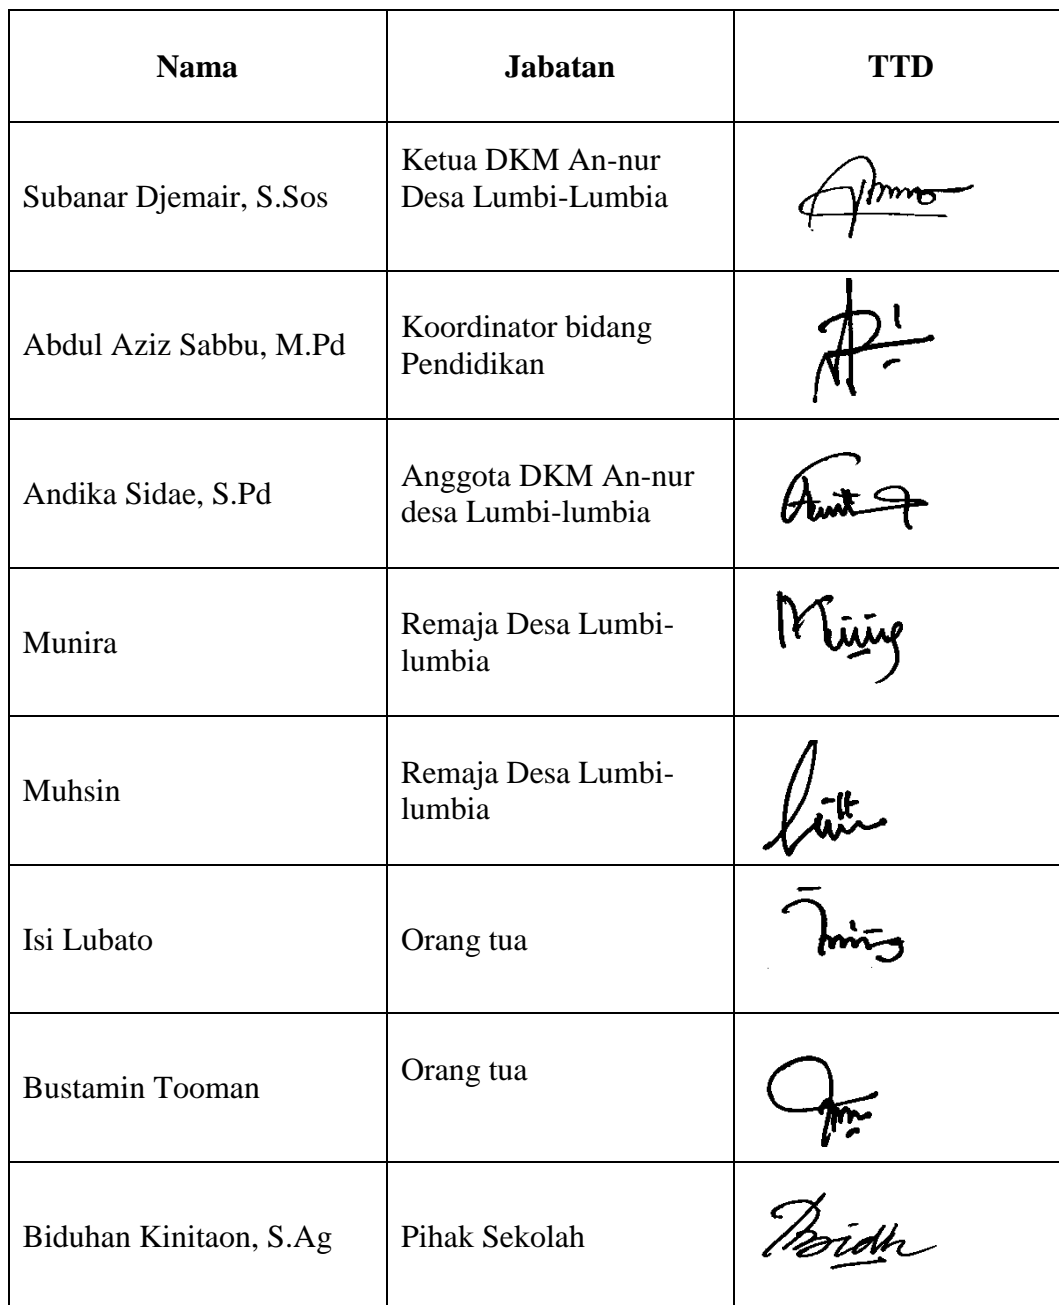 Nama Jabatan TTD
Subanar Djemair, S.Sos
Ketua DKM An-nur
Desa Lumbi-Lumbia
Abdul Aziz Sabbu, M.Pd
Koordinator bidang
Pendidikan
Andika Sidae, S.Pd
Anggota DKM An-nur
desa Lumbi-lumbia
Munira
Remaja Desa Lumbi-
lumbia
Muhsin
Remaja Desa Lumbi-
lumbia
Isi Lubato
Orang tua
Bustamin Tooman
Orang tua
Biduhan Kinitaon, S.Ag
Pihak Sekolah